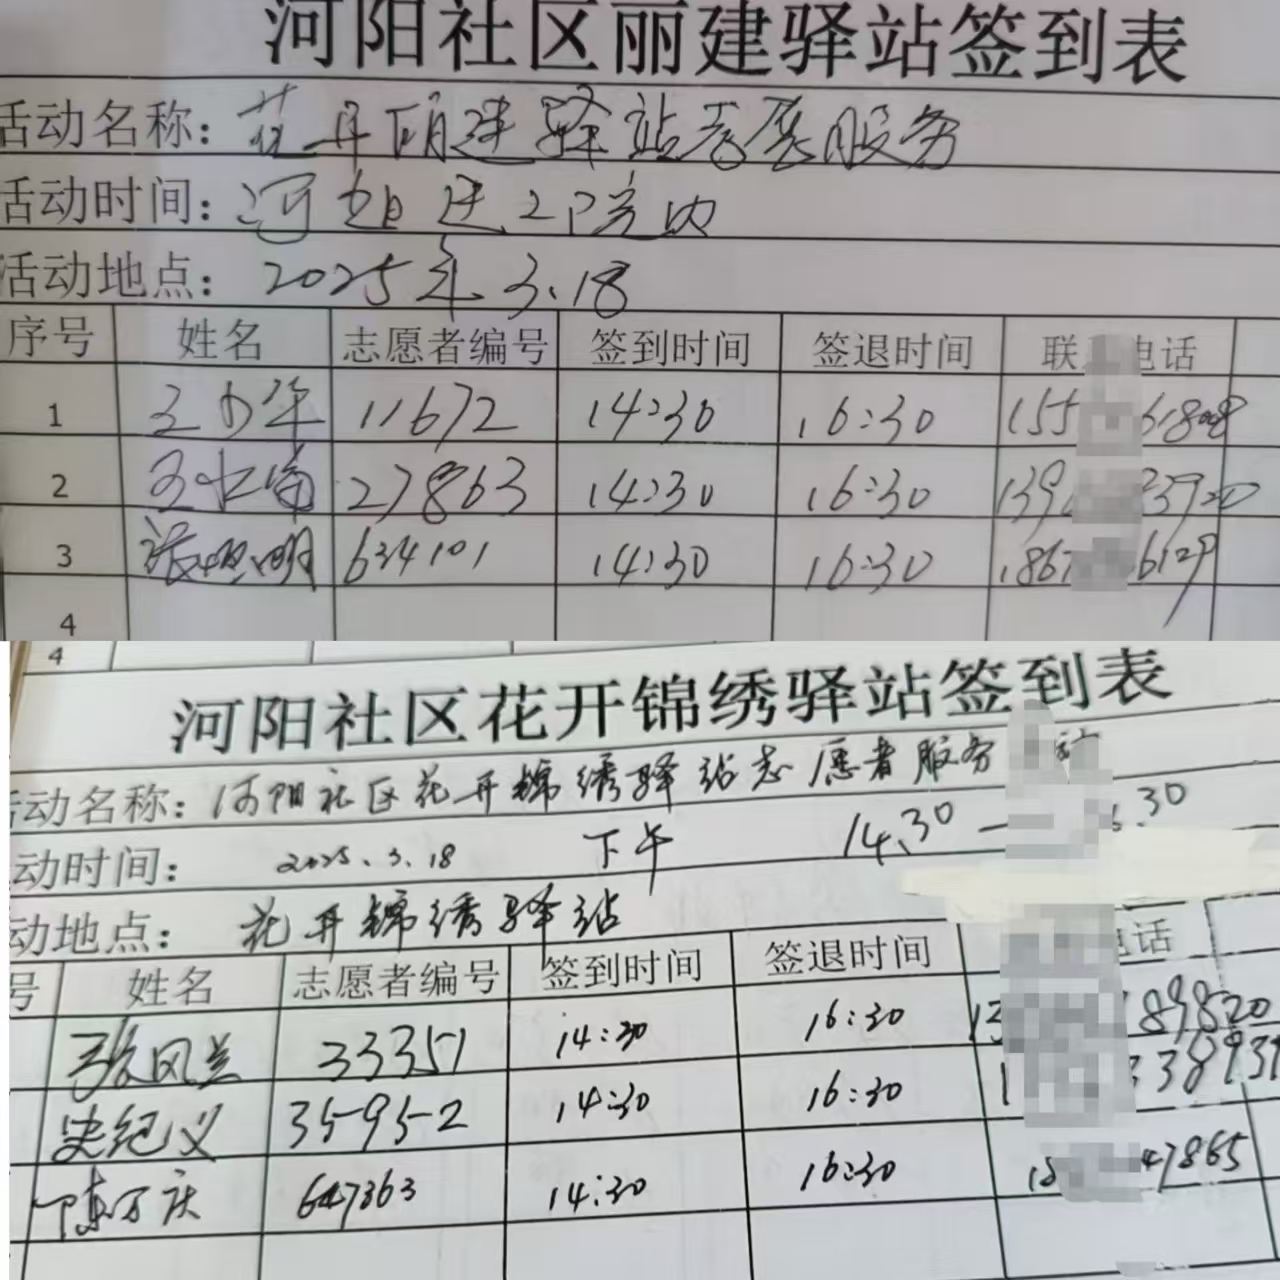 河阳社区丽建驿站签到表
活动名称：花丹丽建驿站志愿服务
活动时间：河阳 院内
活动地点：2025年.3.18
序号 姓名 志愿者编号 签到时间 签退时间 联 电话
1 王少华 11672 14:30 16:30 155 61808
2 27863 14:30 16:30 139 33920
3 张照明 634101 14:30 16:30 1867 6129
4
4
河阳社区花开锦绣驿站签到表
动名称：河阳社区花开锦绣驿站志愿者服务 动
动时间：2025.3.18 下午 14.30 — 6.30
动地点：花开锦绣驿站
号 姓名 志愿者编号 签到时间 签退时间 电话
张凤兰 33351 14:30 16:30 13 89820
史纪义 35952 14:30 16:30 1 338931
陈万庆 647363 14:30 16:30 18 47865